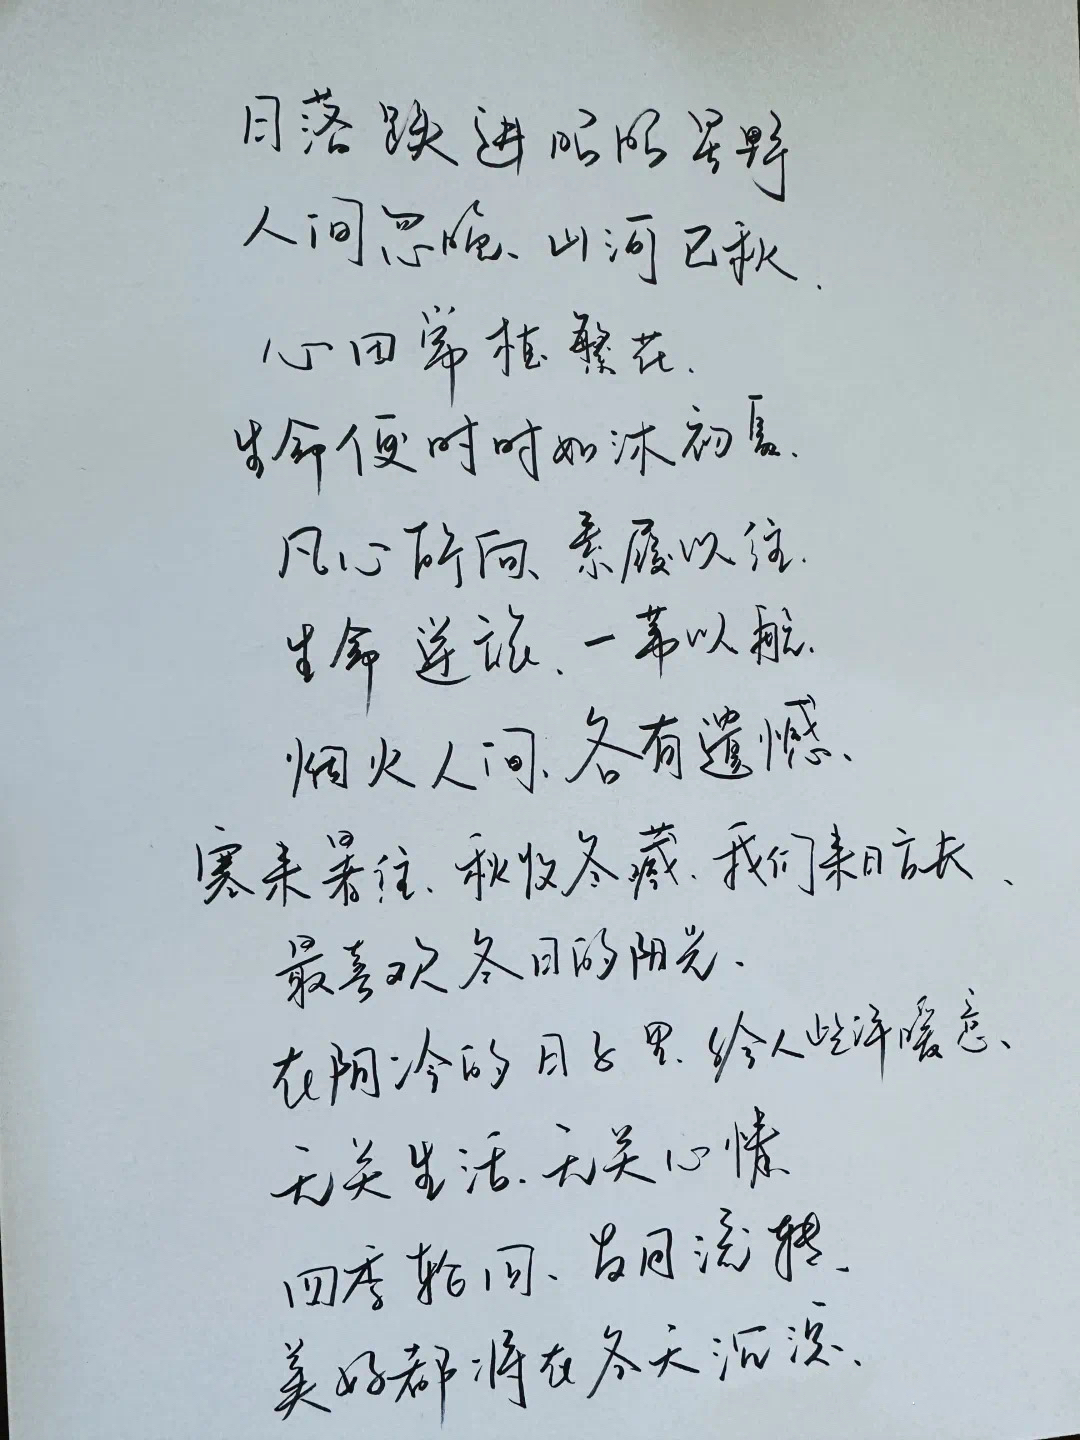 日落跌进昭昭星野
人间忽晚、山河已秋.
心田常植繁花.
生命便时时如沐初夏.
凡心所向、素履以往.
生命逆旅、一苇以航.
烟火人间、各有遗憾、
寒来暑往、秋收冬藏、我们来日方长、
最喜欢冬日的阳光.
在阴冷的日子里、给人些许暖意、
无关生活、无关心情
四季轮回、岁月流转、
美好都将在冬天沉淀、